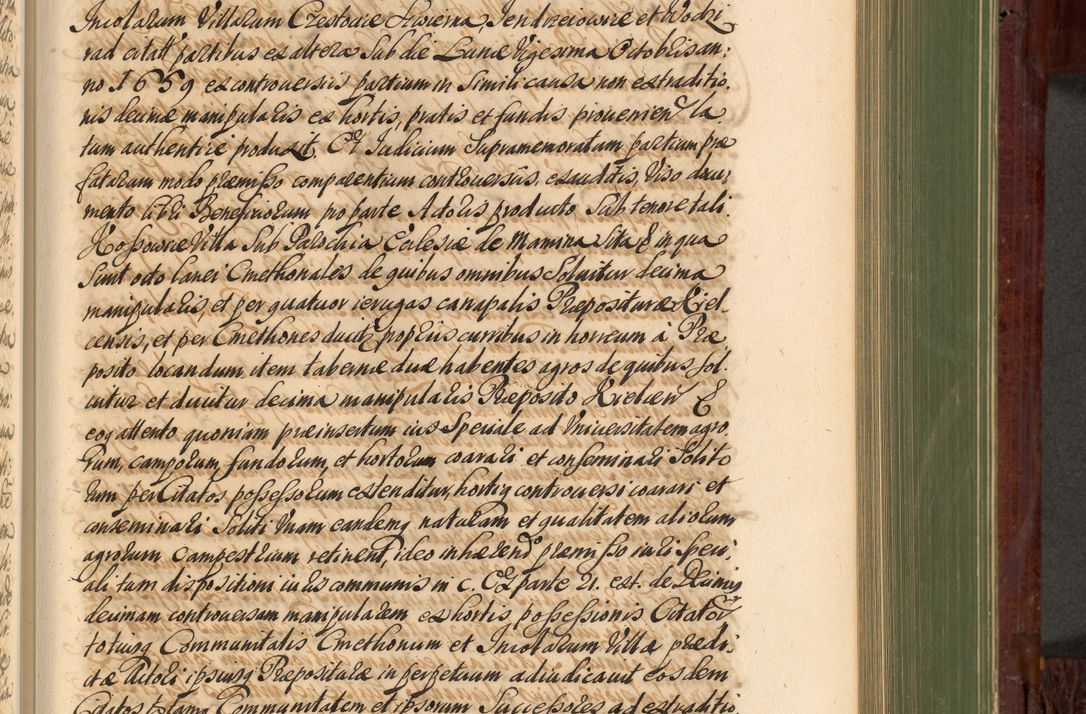 Incolarum Villarum Czestocie Skorzena, Jendrzeiowice et Wodzi,
rad citatt partibus ex altera Sub die Lunæ Vigesima Octobris an,
no 1659 ex controversiis partium in Simili causa non extraditio,
nis decimæ manipularis ex hortis, pratis et fundis provenien la
tum authentice produxit. Et Judicium Supramemoratam partium præ
fatarum modo præmisso comparentium controversiis, exauditis, Viso docu,
mento libri Beneficiorum pro parte Actoris producto Sub tenore tali.
Kossowice Villa Sub Parochia Ecclesiæ de Mamina Sita in qua
Sunt octo lanei Cmethonales de quibus omnibus Solvitur decima
manipularis, et per quatuor ierugas canapalis Præpositura Kiel,
censis, et per Cmethones ducit propriis curribus in horreum à Præ
posito locandum, item tabernæ duæ habentes agros de quibus sol,
vitur et ducitur decima manipularis Præposito Kielcen Et
eoq attento quoniam præinsertum ius Speciale ad Universitatem agro,
rum, camporum, fundorum, et hortorum coarari et conseminari Solito
rum per Citatos possessorum extenditur, hortiq controversi coarari et
conseminari Soliti Unam eandemq naturam et qualitatem aliorum
agrorum campestrium retinent, ideo inhærend præmisso iuri Speci,
ali tam dispositioni iuris communis in c. Ex parte 21. ext. de Decimis
decimam controversam manipularem ex hortis, possessionis Citator
totiusq Communitatis Cmethonum et Incolarum Villæ prædi,
ctæ Actori ipsiusq Præposituræ in perpetuum adiudicavit eosdem
Citatos totamq Communitatem et ipsorum Successores ad extraditio,